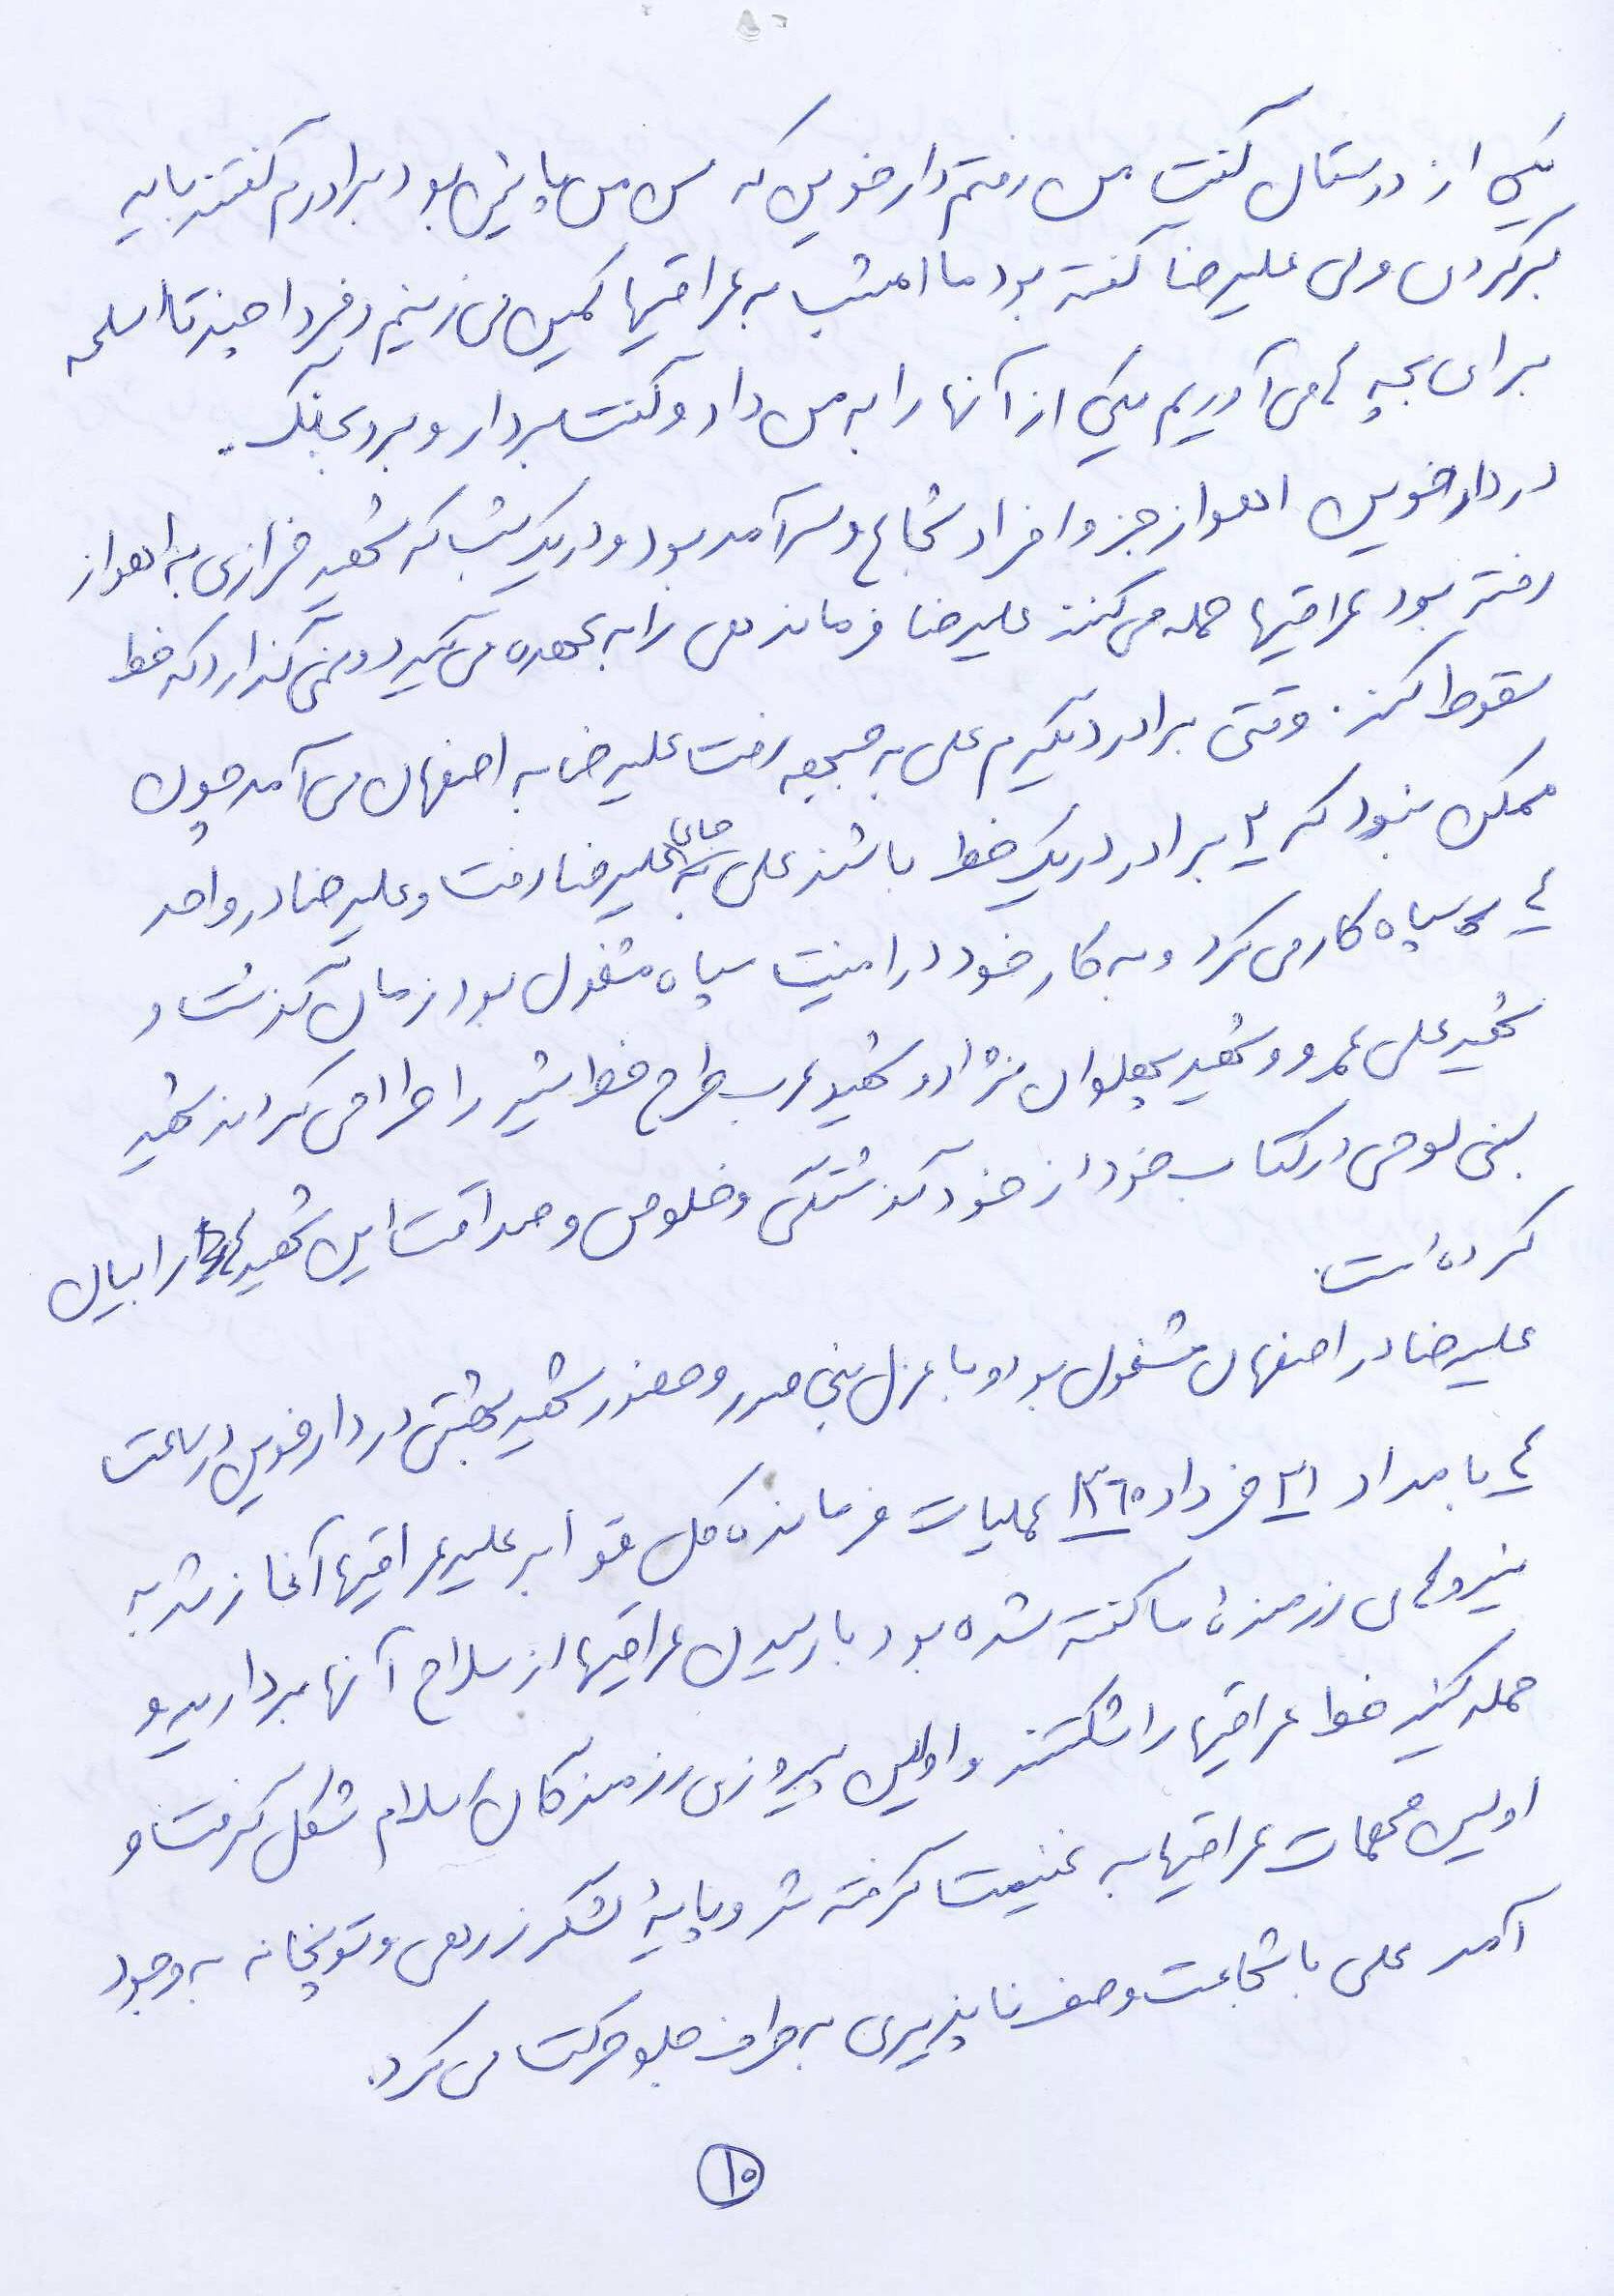 یکی از دوستان گفت من رفتم دارخوین که سن من پائین بود برادرم گفتند باید
برگردی ولی علیرضا گفته بود ما امشب به عراقیها کمین می زنیم و فردا چند تا اسلحه
برای بچه ها می آوریم یکی از آنها را به من داد و گفت بردار و برو بجنگ.
در دارخوین اهواز جزو افراد شجاع و سرآمد بود و در یک شب که شهید خرازی به اهواز
رفته بود عراقیها حمله می کنند علیرضا فرماندهی را به عهده می گیرد و نمی گذارد که خط
سقوط کند. وقتی برادر دیگرم علی به جبهه رفت علیرضا به اصفهان می آمد چون
ممکن نبود که ۲ برادر در یک خط باشند علی به جای علیرضا رفت و علیرضا در واحد
۴ سپاه کار می کرد و به کار خود در امنیت سپاه مشغول بود زمان گذشت و
شهید علی عمرو و شهید پهلوان نژاد و شهید عرب طرح خط شیر را طراحی کردند شهید
بنی لوحی در کتاب خود از خود گذشتگی و خلوص و صداقت این شهید ها را بیان
کرده است.
علیرضا در اصفهان مشغول بود و با عزل بنی صدر و حضور شهید بهشتی در دارخوین در ساعت
۴ بامداد ۲۱ خرداد ۱۳۶۰ عملیات فرمانده کل قوا بر علیه عراقیها آغاز شد به
نیروهای رزمندۀ ما گفته شده بود با رسیدن عراقیها از سلاح آنها بردارید و
حمله کنید خط عراقیها را شکستند و اولین پیروزی رزمندگان اسلام شکل گرفت و
اولین مهمات عراقیها به غنیمت گرفته شد و پایۀ لشکر زرهی و توپخانه به وجود
آمد علی با شجاعت وصف ناپذیری به طرف جلو حرکت می کرد.
۱۰